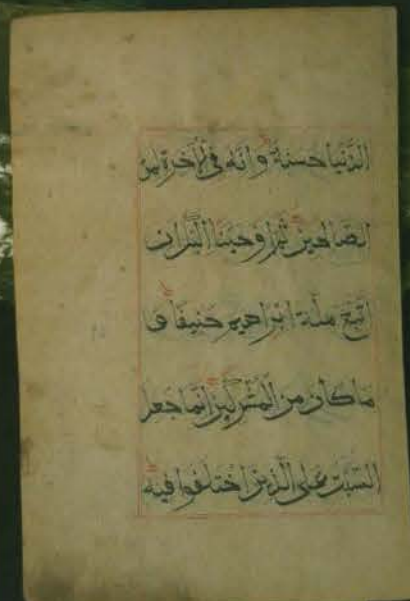 الدُّنْيَا حَسَنَةً وَإِنَّهُ فِي الْآخِرَةِ لَمِنَ
الصَّالِحِينَ ثُمَّ أَوْحَيْنَا إِلَيْكَ أَنِ
اتَّبِعْ مِلَّةَ إِبْرَاهِيمَ حَنِيفًا وَ
مَا كَانَ مِنَ الْمُشْرِكِينَ إِنَّمَا جُعِلَ
السَّبْتُ عَلَى الَّذِينَ اخْتَلَفُوا فِيهِ